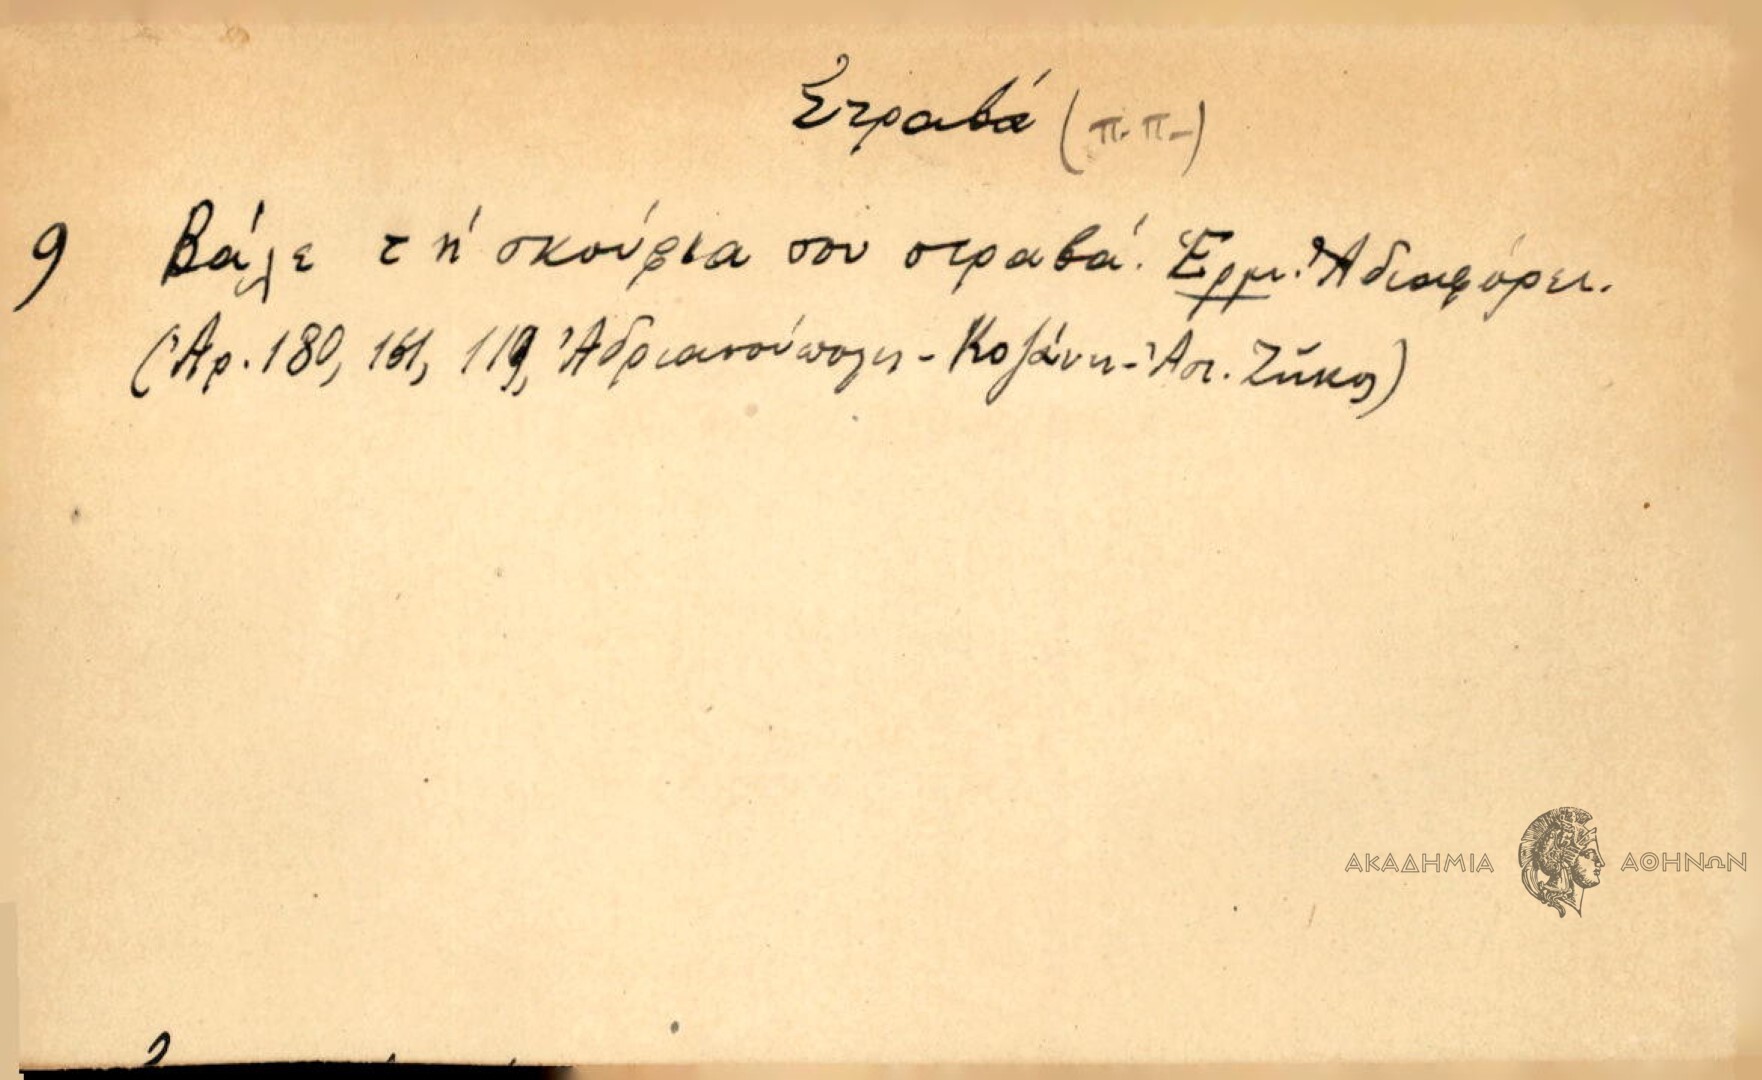 Στραβά (π.π.)
9 Βάλε τή σκούφια σου στραβά. Ἑρμ. Ἀδιαφόρει.
(Ἀρ. 180, 161, 119, Ἀδριανούπολις - Κοζάνη - Ἀπ. Ζῆκος)
ΑΚΑΔΗΜΙΑ ΑΘΗΝΩΝ